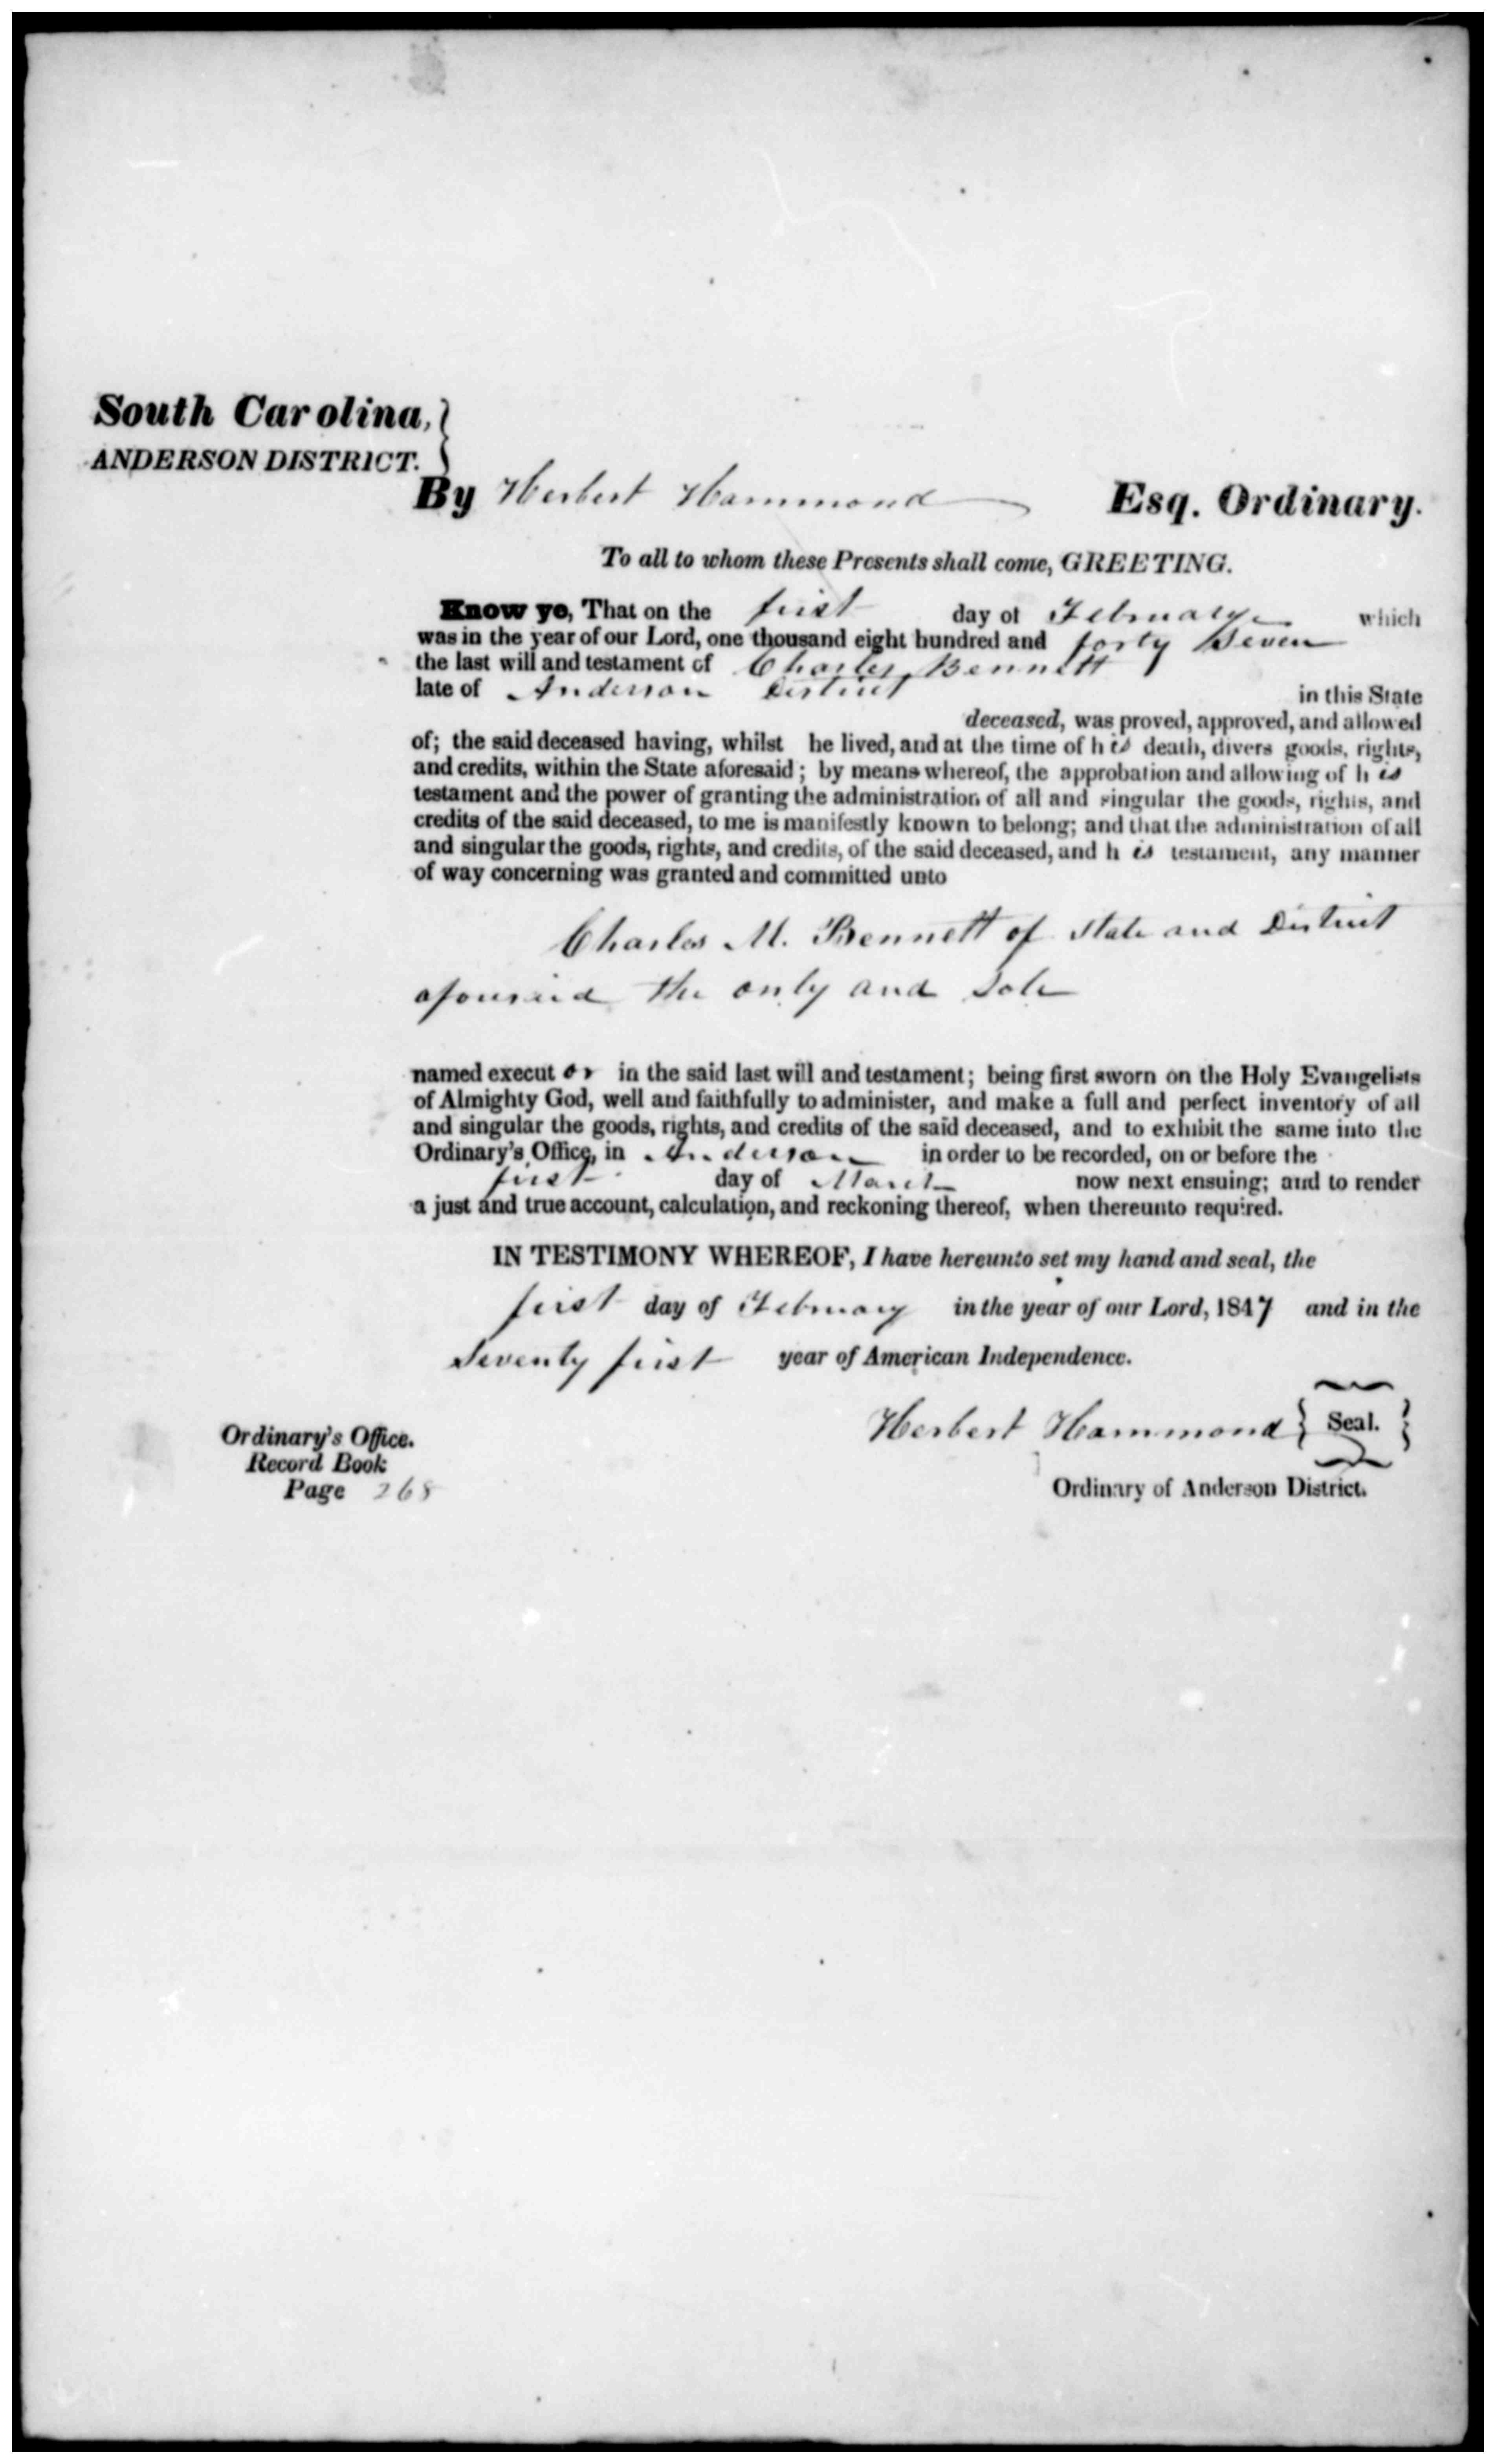 South Carolina,
ANDERSON DISTRICT.
By Herbert Hammond Esq. Ordinary.
To all to whom these Presents shall come, GREETING.
Know ye, That on the first day of February which
was in the year of our Lord, one thousand eight hundred and forty Seven
the last will and testament of Charles Bennett
late of Anderson District in this State
deceased, was proved, approved, and allowed
of; the said deceased having, whilst he lived, and at the time of his death, divers goods, rights,
and credits, within the State aforesaid; by means whereof, the approbation and allowing of his
testament and the power of granting the administration of all and singular the goods, rights, and
credits of the said deceased, to me is manifestly known to belong; and that the administration of all
and singular the goods, rights, and credits, of the said deceased, and his testament, any manner
of way concerning was granted and committed unto
Charles M. Bennett of State and District
aforesaid the only and Sole
named executor in the said last will and testament; being first sworn on the Holy Evangelists
of Almighty God, well and faithfully to administer, and make a full and perfect inventory of all
and singular the goods, rights, and credits of the said deceased, and to exhibit the same into the
Ordinary's Office, in Anderson in order to be recorded, on or before the
first day of March now next ensuing; and to render
a just and true account, calculation, and reckoning thereof, when thereunto required.
IN TESTIMONY WHEREOF, I have hereunto set my hand and seal, the
first day of February in the year of our Lord, 1847 and in the
Seventy first year of American Independence.
Herbert Hammond { Seal. }
Ordinary of Anderson District.
Ordinary's Office.
Record Book
Page 268